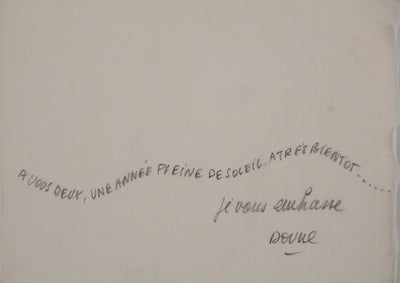 A VOUS DEUX, UNE ANNÉE PLEINE DE SOLEIL. A TRES BIENTOT.......
je vous embrasse